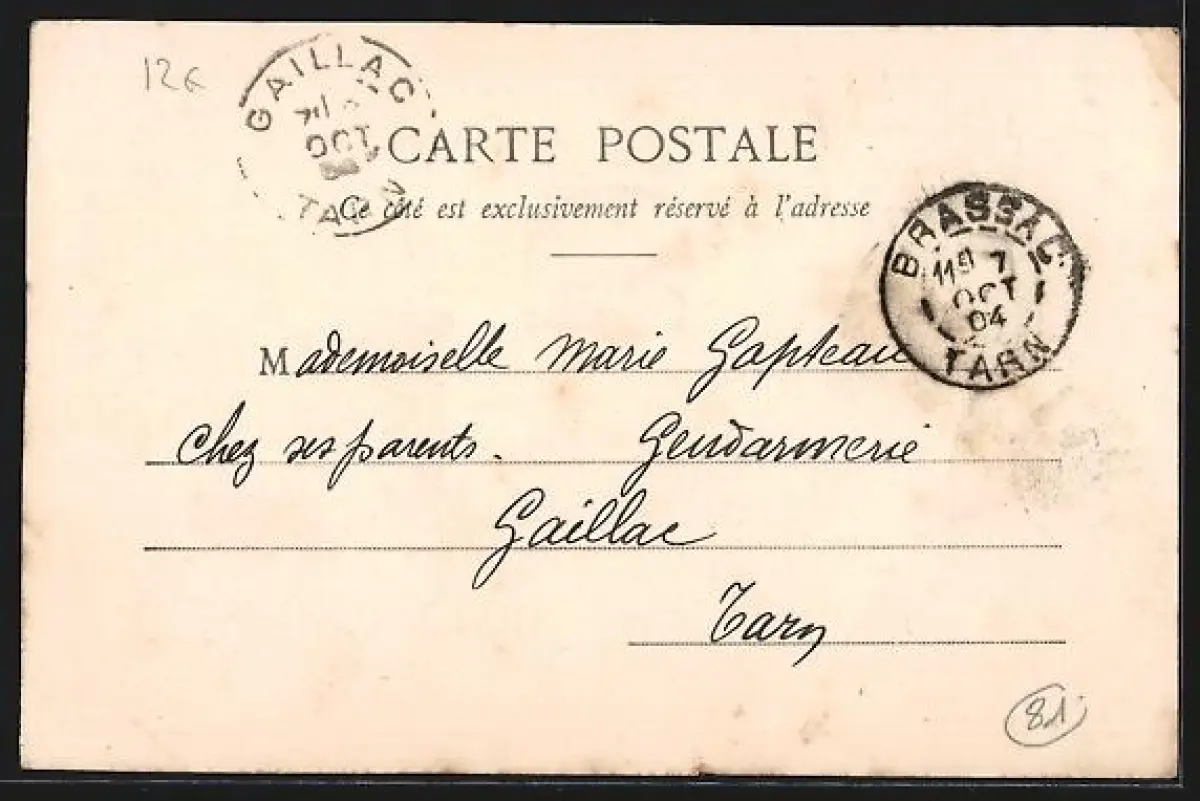 12€
GAILLAC
OCT
TARN
CARTE POSTALE
Ce côté est exclusivement réservé à l'adresse
BRASSAC
7
OCT
04
TARN
Mademoiselle Marie Gapteau
Chez ses parents. Gendarmerie
Gaillac
Tarn
81